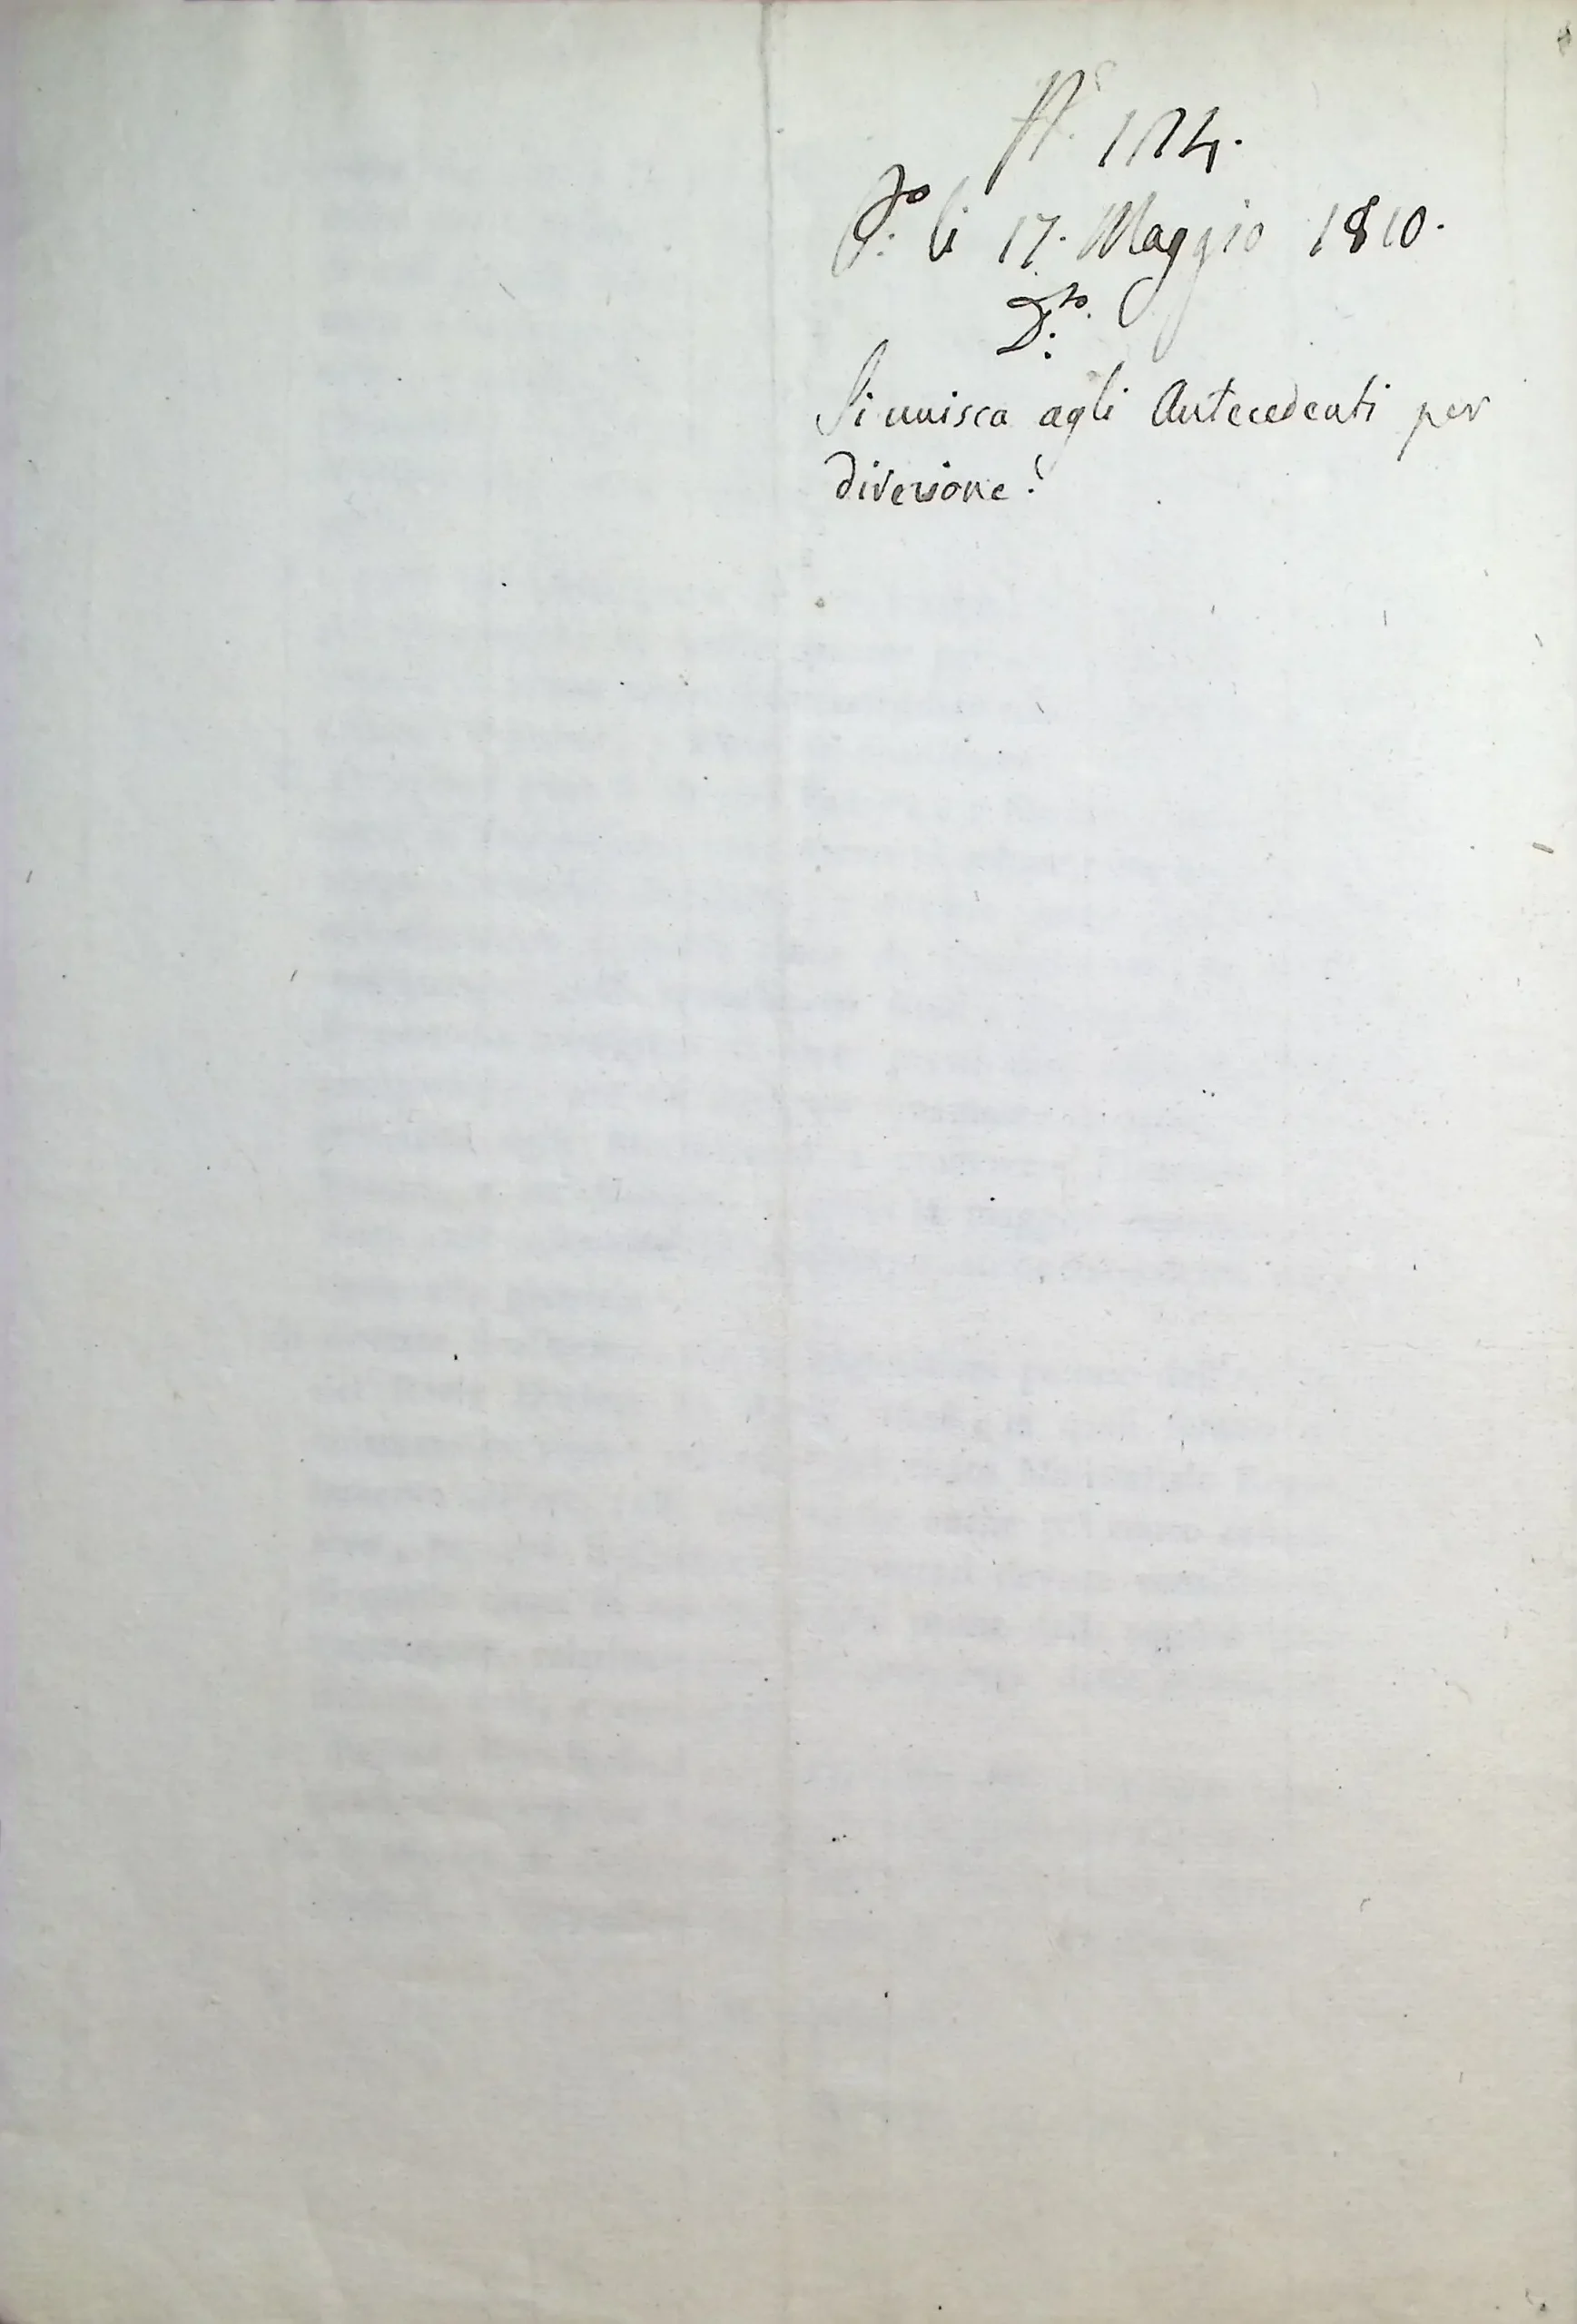 N.° 1124.
P.to li 17. Maggio 1810.
D.to
Si unisca agli Antecedenti per
diversione.